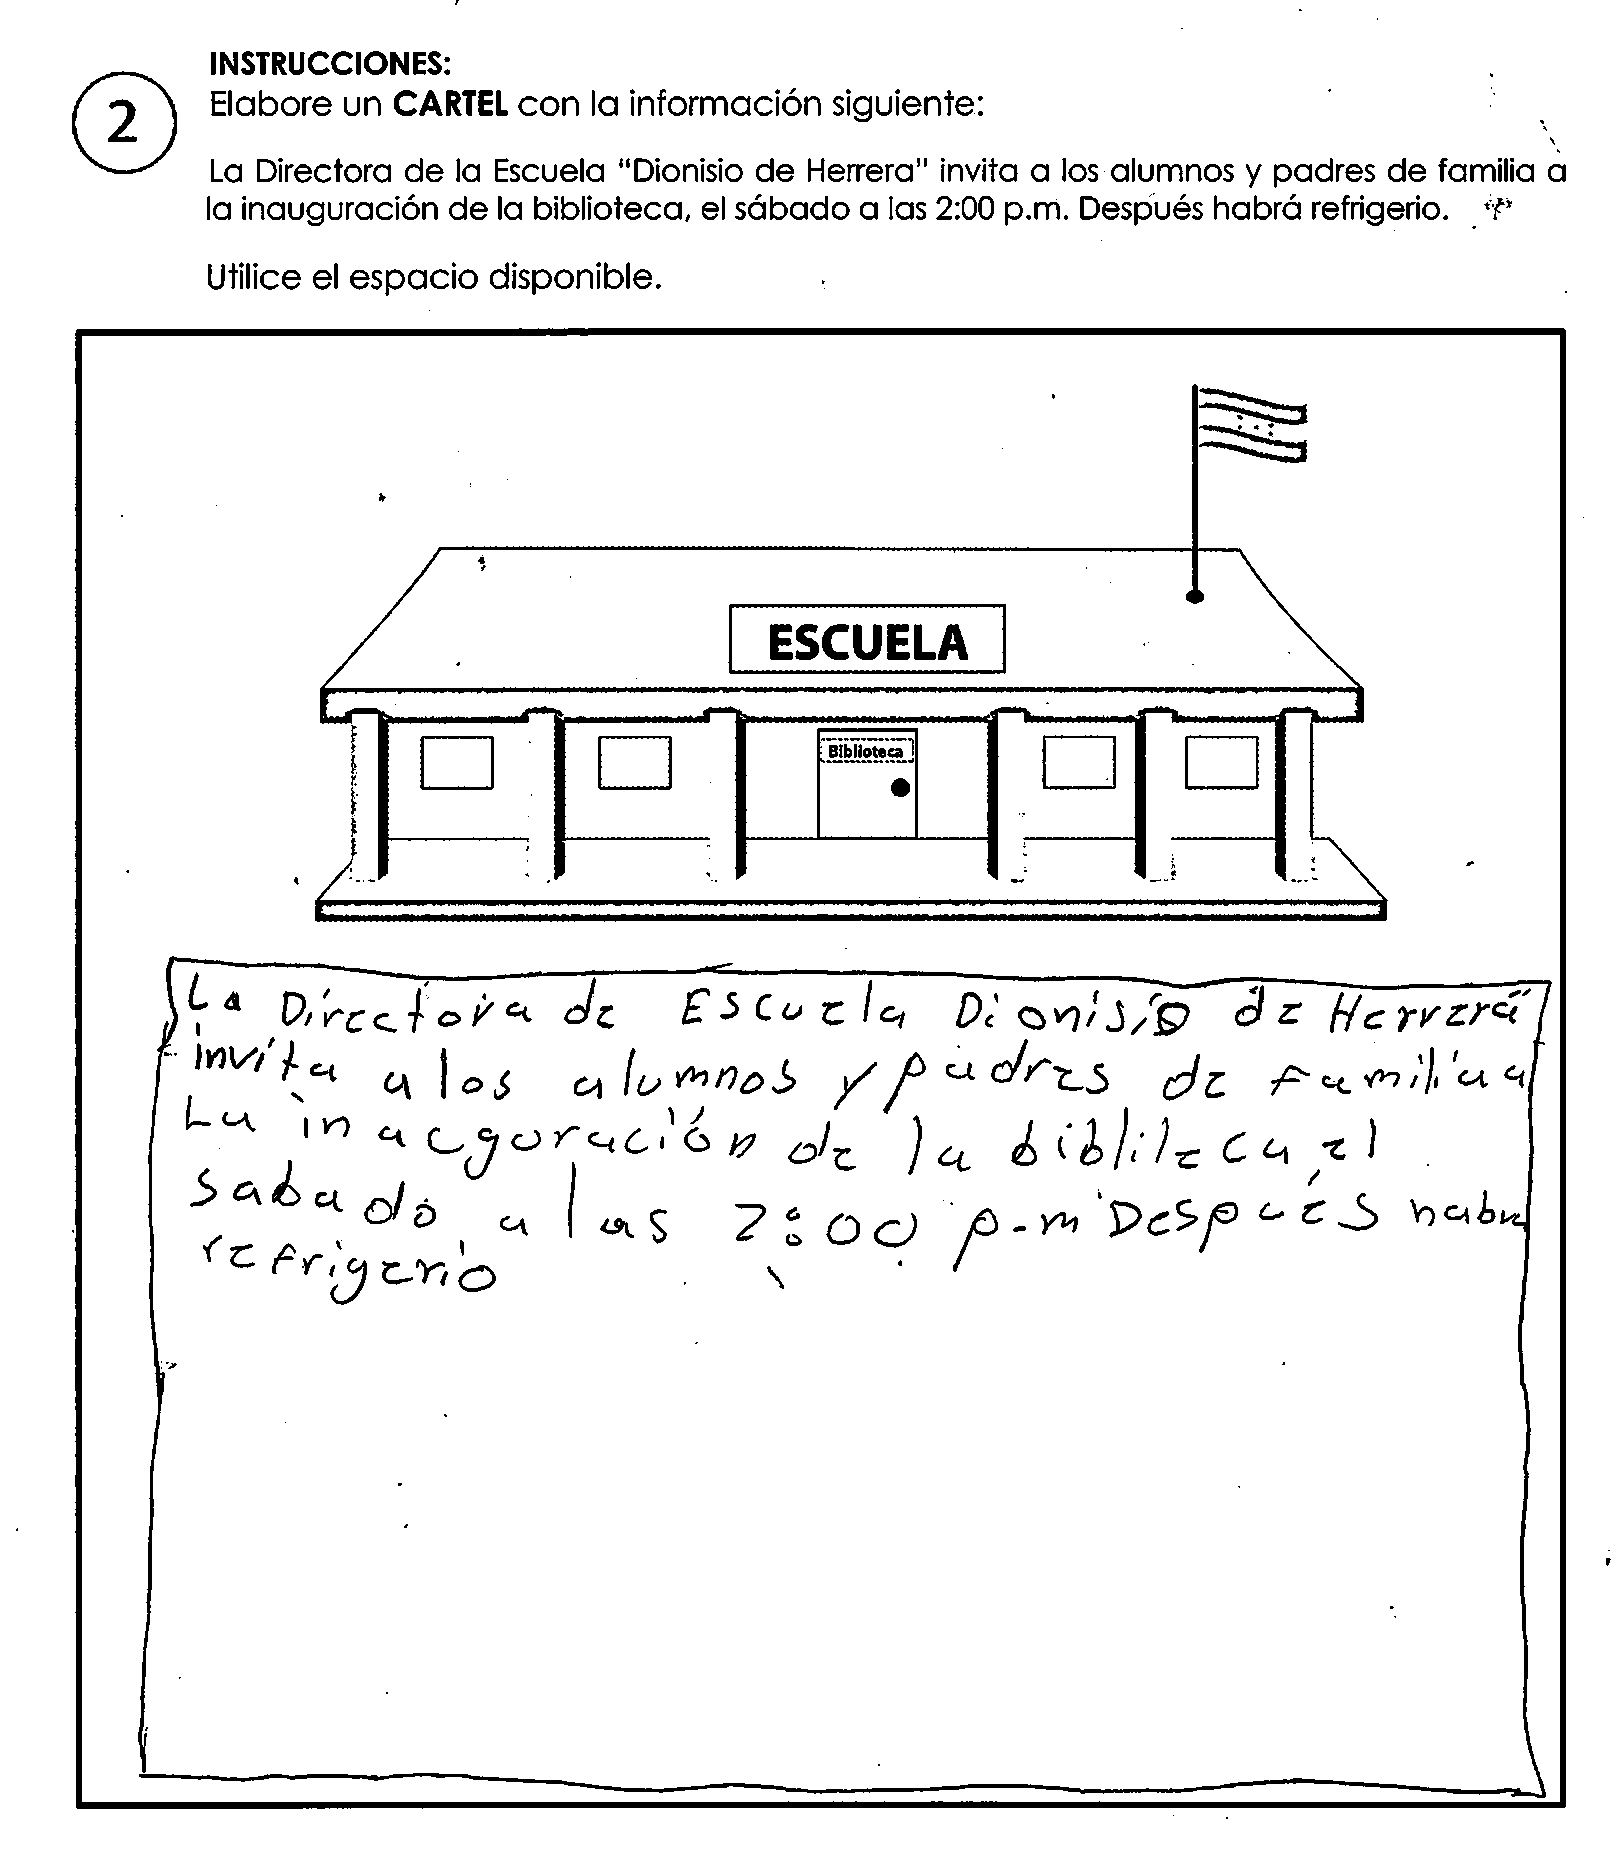 INSTRUCCIONES:
2
Elabore un CARTEL con la información siguiente:
La Directora de la Escuela "Dionisio de Herrera" invita a los alumnos y padres de familia a
la inauguración de la biblioteca, el sábado a las 2:00 p.m. Después habrá refrigerio.
Utilice el espacio disponible.
ESCUELA
Biblioteca
La Directora de Escuela Dionisio de Herrera"
invita a los alumnos y padres de familia a
La inacguración de la biblileca, el
sabado a las 2:00 p.m Después habra
refrigerio